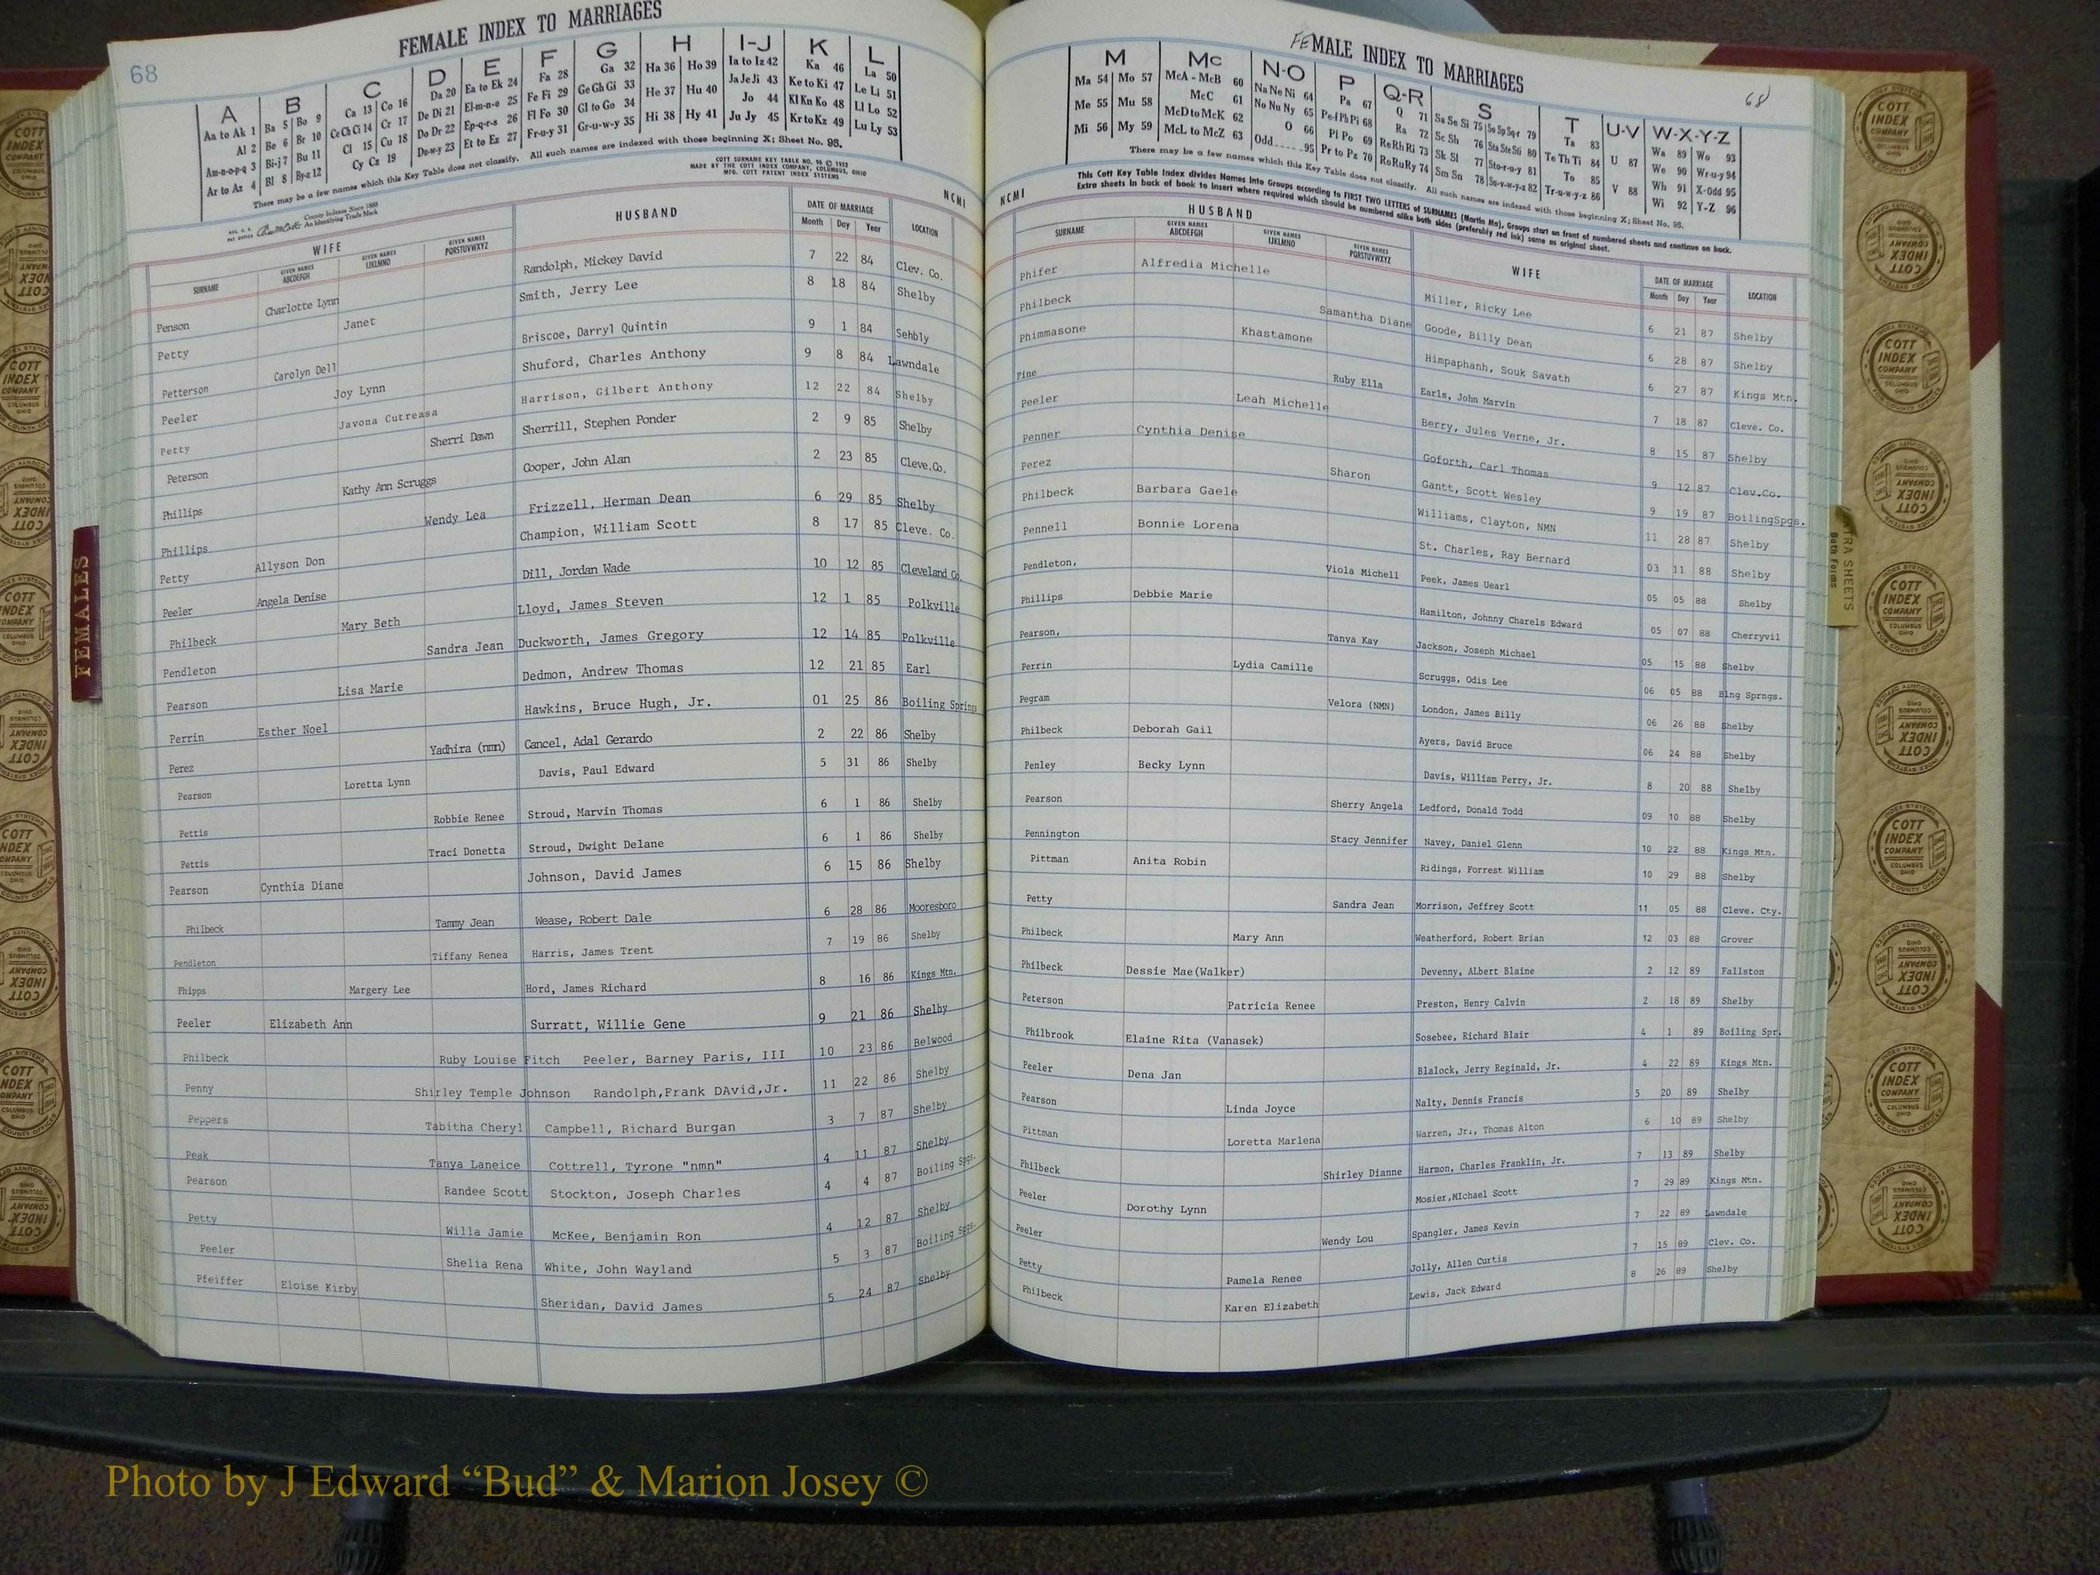 68
FEMALE INDEX TO MARRIAGES
A B C D E F G H I-J K L
Aa to Ak 1 Ba 5 Bo 9 Ca 13 Co 16 Da 20 Ea to Ek 24 Fa 28 Ga 32 Ha 36 Ho 39 Ia to Iz 42 Ka 46 La 50
Al 2 Be 6 Br 10 Ce Ch Ci 14 Cr 17 De Di 21 El-m-n-o 25 Fe Fi 29 Ge Gh Gi 33 He 37 Hu 40 Ja Je Ji 43 Ke to Ki 47 Le Li 51
Am-n-o-p-q 3 Bi-j 7 Bu 11 Cl 15 Cu 18 Do Dr 22 Ep-q-r-s 26 Fl Fo 30 Gl to Go 34 Hi 38 Hy 41 Jo 44 Kl Kn Ko 48 Ll Lo 52
Ar to Az 4 Bl 8 By-z 12 Cy Cz 19 Du-w-y 23 Et to Ez 27 Fr-u-y 31 Gr-u-w-y 35 Ju Jy 45 Kr to Kz 49 Lu Ly 53
There may be a few names which this Key Table does not classify. All such names are indexed with those beginning X; Sheet No. 95.
COTT SURNAME KEY TABLE NO. 96 © 1932
MADE BY THE COTT INDEX COMPANY, COLUMBUS, OHIO
MFG. COTT PATENT INDEX SYSTEMS
NCMI
County Indexes Since 1888
An Identifying Trade Mark
WIFE HUSBAND DATE OF MARRIAGE LOCATION
SURNAME GIVEN NAMES ABCDEFGH GIVEN NAMES IJKLMNO GIVEN NAMES PQRSTUVWXYZ Month Day Year
Penson Charlotte Lynn Randolph, Mickey David 7 22 84 Clev. Co.
Petty Janet Smith, Jerry Lee 8 18 84 Shelby
Petterson Carolyn Dell Briscoe, Darryl Quintin 9 1 84 Sehbly
Peeler Joy Lynn Shuford, Charles Anthony 9 8 84 Lawndale
Petty Javona Cutreasa Harrison, Gilbert Anthony 12 22 84 Shelby
Peterson Sherri Dawn Sherrill, Stephen Ponder 2 9 85 Shelby
Phillips Kathy Ann Scruggs Cooper, John Alan 2 23 85 Cleve.Co.
Phillips Wendy Lea Frizzell, Herman Dean 6 29 85 Shelby
Petty Allyson Don Champion, William Scott 8 17 85 Cleve. Co.
Peeler Angela Denise Dill, Jordan Wade 10 12 85 Cleveland Co.
Philbeck Mary Beth Lloyd, James Steven 12 1 85 Polkville
Pendleton Sandra Jean Duckworth, James Gregory 12 14 85 Polkville
Pearson Lisa Marie Dedmon, Andrew Thomas 12 21 85 Earl
Perrin Esther Noel Hawkins, Bruce Hugh, Jr. 01 25 86 Boiling Springs
Perez Yadhira (nmn) Cancel, Adal Gerardo 2 22 86 Shelby
Pearson Loretta Lynn Davis, Paul Edward 5 31 86 Shelby
Pettis Robbie Renee Stroud, Marvin Thomas 6 1 86 Shelby
Pettis Traci Donetta Stroud, Dwight Delane 6 1 86 Shelby
Pearson Cynthia Diane Johnson, David James 6 15 86 Shelby
Philbeck Tammy Jean Wease, Robert Dale 6 28 86 Mooresboro
Pendleton Tiffany Renea Harris, James Trent 7 19 86 Shelby
Phipps Margery Lee Hord, James Richard 8 16 86 Kings Mtn.
Peeler Elizabeth Ann Surratt, Willie Gene 9 21 86 Shelby
Philbeck Ruby Louise Fitch Peeler, Barney Paris, III 10 23 86 Belwood
Penny Shirley Temple Johnson Randolph,Frank DAvid,Jr. 11 22 86 Shelby
Peppers Tabitha Cheryl Campbell, Richard Burgan 3 7 87 Shelby
Peak Tanya Laneice Cottrell, Tyrone "nmn" 4 11 87 Shelby
Pearson Randee Scott Stockton, Joseph Charles 4 4 87 Boiling Spgs.
Petty Willa Jamie McKee, Benjamin Ron 4 12 87 Shelby
Peeler Shelia Rena White, John Wayland 5 3 87 Boiling Spgs.
Pfeiffer Eloise Kirby Sheridan, David James 5 24 87 Shelby
FEMALE INDEX TO MARRIAGES
68
M Mc N-O P Q-R S T U-V W-X-Y-Z
Ma 54 Mo 57 McA - McB 60 Na Ne Ni 64 Pa 67 Q 71 Sa Se Si 75 So Sp Sq-r 79 Ta 83 Wa 89 Wo 93
Me 55 Mu 58 McC 61 No Nu Ny 65 Pe-f Ph Pi 68 Ra 72 Sc Sh 76 Sta Ste Sti 80 Te Th Ti 84 U 87 We 90 Wr-u-y 94
Mi 56 My 59 McD to McK 62 O 66 Pl Po 69 Re Rh Ri 73 Sk Sl 77 Sto-r-u-y 81 To 85 V 88 Wh 91 X-Odd 95
McL to McZ 63 Odd 95 Pr to Pz 70 Ro Ru Ry 74 Sm Sn 78 Su-v-w-y-z 82 Tr-u-w-y-z 86 Wi 92 Y-Z 96
There may be a few names which this Key Table does not classify. All such names are indexed with those beginning X; Sheet No. 95.
This Cott Key Table Index divides Names into Groups according to FIRST TWO LETTERS of SURNAMES (Martin Ma), Groups start on front of numbered sheets and continue on back.
Extra sheets in back of book to insert where required which should be numbered alike both sides (preferably red ink) same as original sheet.
NCMI
HUSBAND WIFE DATE OF MARRIAGE LOCATION
SURNAME GIVEN NAMES ABCDEFGH GIVEN NAMES IJKLMNO GIVEN NAMES PQRSTUVWXYZ Month Day Year
Phifer Alfredia Michelle Miller, Ricky Lee 6 21 87 Shelby
Philbeck Samantha Diane Goode, Billy Dean 6 28 87 Shelby
Phimmasone Khastamone Himpaphanh, Souk Savath 6 27 87 Kings Mtn.
Pine Ruby Ella Earls, John Marvin 7 18 87 Cleve. Co.
Peeler Leah Michelle Berry, Jules Verne, Jr. 8 15 87 Shelby
Penner Cynthia Denise Goforth, Carl Thomas 9 12 87 Clev.Co.
Perez Sharon Gantt, Scott Wesley 9 19 87 BoilingSpgs.
Philbeck Barbara Gaele Williams, Clayton, NMN 11 28 87 Shelby
Pennell Bonnie Lorena St. Charles, Ray Bernard 03 11 88 Shelby
Pendleton, Viola Michell Peek, James Uearl 05 05 88 Shelby
Phillips Debbie Marie Hamilton, Johnny Charels Edward 05 07 88 Cherryvil
Pearson, Tanya Kay Jackson, Joseph Michael 05 15 88 Shelby
Perrin Lydia Camille Scruggs, Odis Lee 06 05 88 Blng Sprngs.
Pegram Velora (NMN) London, James Billy 06 26 88 Shelby
Philbeck Deborah Gail Ayers, David Bruce 06 24 88 Shelby
Penley Becky Lynn Davis, William Perry, Jr. 8 20 88 Shelby
Pearson Sherry Angela Ledford, Donald Todd 09 10 88 Shelby
Pennington Stacy Jennifer Navey, Daniel Glenn 10 22 88 Kings Mtn.
Pittman Anita Robin Ridings, Forrest William 10 29 88 Shelby
Petty Sandra Jean Morrison, Jeffrey Scott 11 05 88 Cleve. Cty.
Philbeck Mary Ann Weatherford, Robert Brian 12 03 88 Grover
Philbeck Dessie Mae(Walker) Devenny, ALbert Blaine 2 12 89 Fallston
Peterson Patricia Renee Preston, Henry Calvin 2 18 89 Shelby
Philbrook Elaine Rita (Vanasek) Sosebee, Richard Blair 4 1 89 Boiling Spr.
Peeler Dena Jan Blalock, Jerry Reginald, Jr. 4 22 89 Kings Mtn.
Pearson Linda Joyce Nalty, Dennis Francis 5 20 89 Shelby
Pittman Loretta Marlena Warren, Jr., Thomas Alton 6 10 89 Shelby
Philbeck Shirley Dianne Harmon, Charles Franklin, Jr. 7 13 89 Shelby
Peeler Dorothy Lynn Mosier,MIchael Scott 7 29 89 Kings Mtn.
Peeler Wendy Lou Spangler, James Kevin 7 22 89 Lawndale
Petty Pamela Renee Jolly, Allen Curtis 7 15 89 Clev. Co.
Philbeck Karen Elizabeth Lewis, Jack Edward 8 26 89 Shelby
FEMALES
EXTRA SHEETS
Both Forms
COTT INDEX COMPANY COLUMBUS OHIO
INDEX SYSTEMS FOR COUNTY OFFICES
Photo by J Edward “Bud” & Marion Josey ©